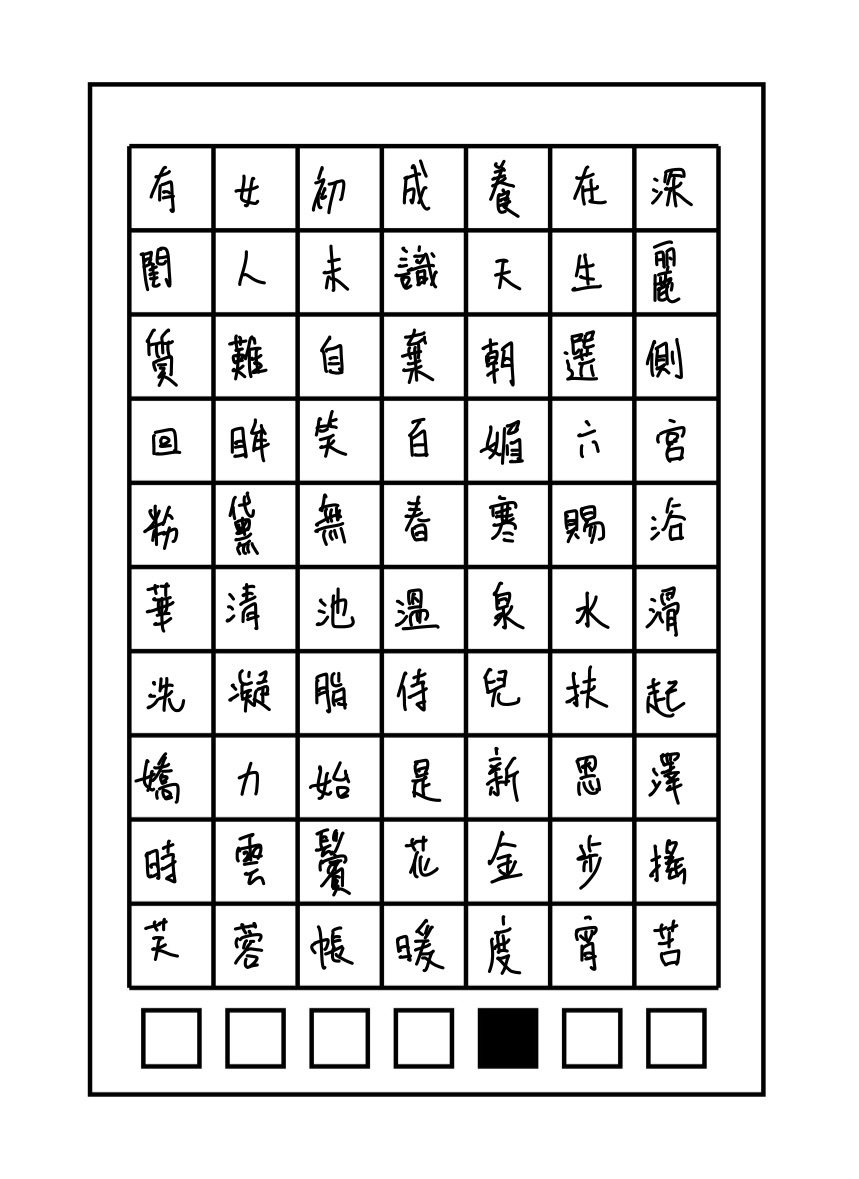 有女初成養在深
閨人未識天生麗
質難自棄朝選側
回眸笑百媚六宮
粉黛無春寒賜浴
華清池溫泉水滑
洗凝脂侍兒扶起
嬌力始是新恩澤
時雲鬢花金步搖
芙蓉帳暖度宵苦